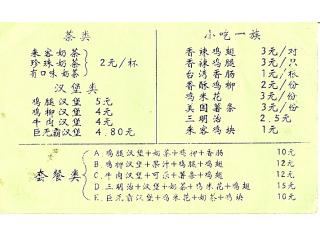 茶类
来客奶茶
珍珠奶茶 2元/杯
有口味奶茶
汉堡类
鸡腿汉堡 5元
鸡柳汉堡 4元
牛肉汉堡 4元
巨无霸汉堡 4.80元
小吃一族
香辣鸡翅 3元/对
香辣鸡腿 3元/只
台湾香肠 1元/根
香酥鸡柳 2元/份
鸡米花 3元/份
美国薯条 3元/份
三明治 2.5元
来客鸡块 1元
套餐类
A.鸡腿汉堡+奶茶+鸡柳+香肠 10元
B.鸡柳汉堡+果汁+鸡块+鸡翅 12元
C.牛肉汉堡+可乐+薯条+鸡翅 12元
D.三明治+汉堡+奶茶+鸡米花+鸡翅 15元
E.巨无霸汉堡+奶茶+鸡米花+鸡块 10元